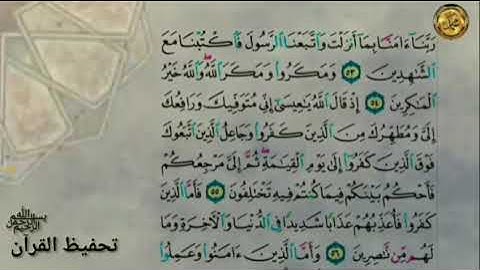 رَبَّنَآ ءَامَنَّا بِمَآ أَنزَلْتَ وَٱتَّبَعْنَا ٱلرَّسُولَ فَٱكْتُبْنَا مَعَ
ٱلشَّٰهِدِينَ ٥٣ وَمَكَرُوا۟ وَمَكَرَ ٱللَّهُ وَٱللَّهُ خَيْرُ
ٱلْمَٰكِرِينَ ٥٤ إِذْ قَالَ ٱللَّهُ يَٰعِيسَىٰٓ إِنِّى مُتَوَفِّيكَ وَرَافِعُكَ
إِلَىَّ وَمُطَهِّرُكَ مِنَ ٱلَّذِينَ كَفَرُوا۟ وَجَاعِلُ ٱلَّذِينَ ٱتَّبَعُوكَ
فَوْقَ ٱلَّذِينَ كَفَرُوٓا۟ إِلَىٰ يَوْمِ ٱلْقِيَٰمَةِ ثُمَّ إِلَىَّ مَرْجِعُكُمْ
فَأَحْكُمُ بَيْنَكُمْ فِيمَا كُنتُمْ فِيهِ تَخْتَلِفُونَ ٥٥ فَأَمَّا ٱلَّذِينَ
كَفَرُوا۟ فَأُعَذِّبُهُمْ عَذَابًا شَدِيدًا فِى ٱلدُّنْيَا وَٱلْءَاخِرَةِ وَمَا
لَهُم مِّن نَّٰصِرِينَ ٥٦ وَأَمَّا ٱلَّذِينَ ءَامَنُوا۟ وَعَمِلُوا۟
بسم الله الرحمن الرحيم
تحفيظ القرآن